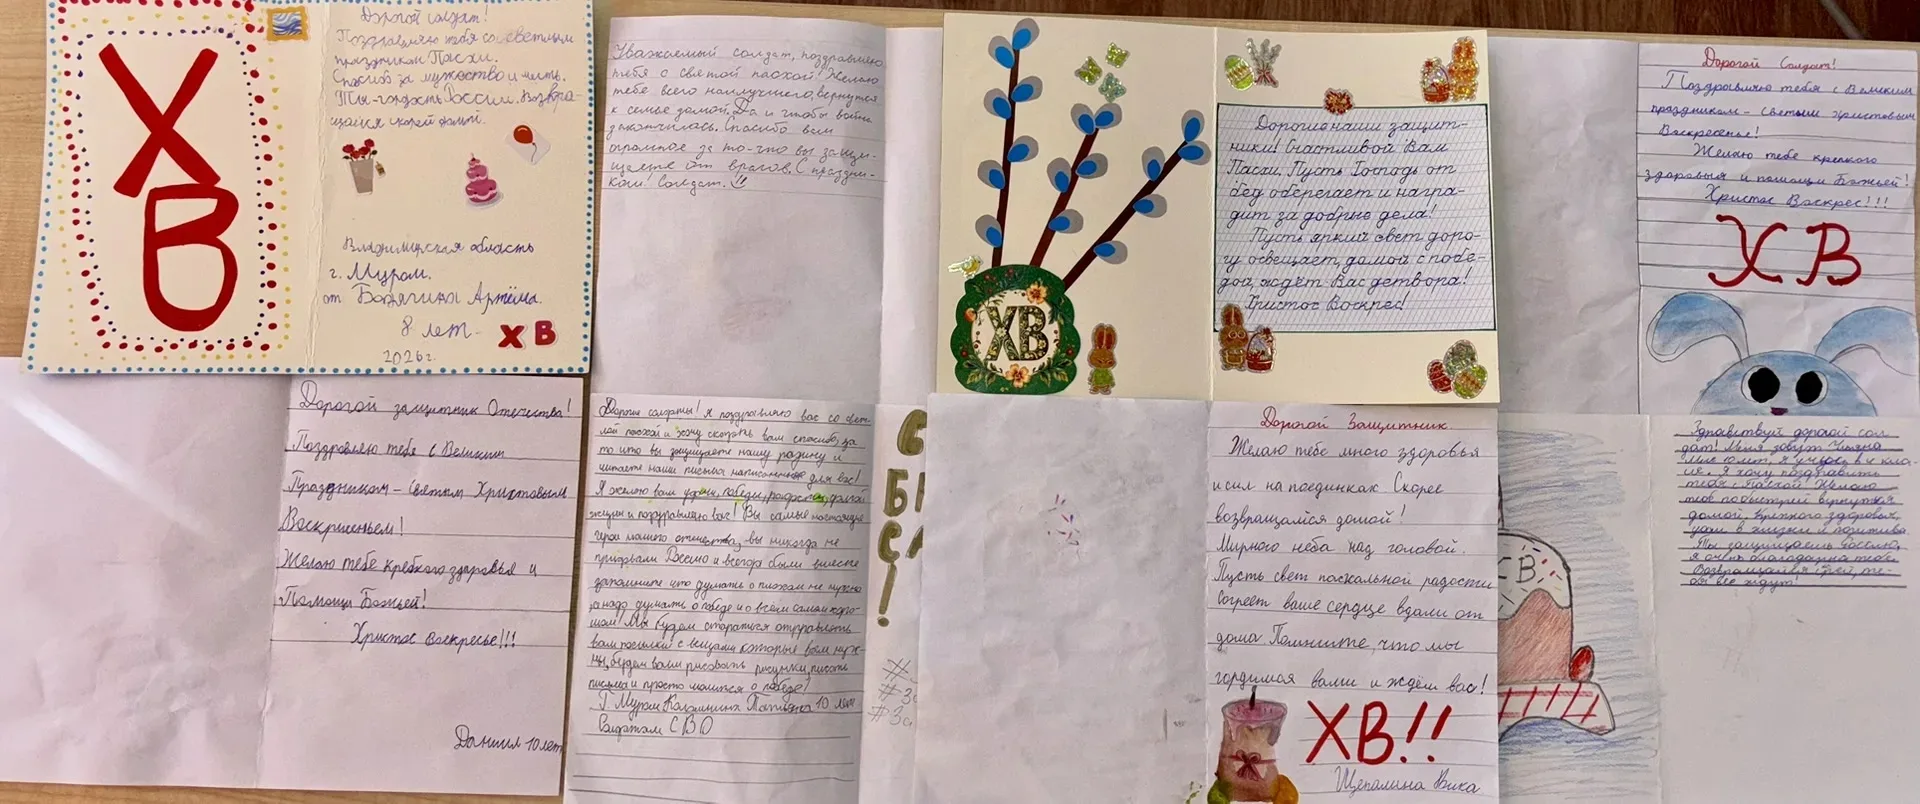 ХВ
Дорогой солдат!
Поздравляю тебя со светлым
праздником Пасхи.
Спасибо за мужество и честь.
Ты-гордость России. Возвра-
щайся скорей домой.
Владимирская область
г. Муром.
от Бодягина Артёма.
8 лет-
ХВ
2026г.
Уважаемый солдат, поздравляю
тебя с святой пасхой! Желаю
тебе всего наилучшего, вернутся
к семье домой. Да и чтобы война
закончилась. Спасибо вам
огромное за то-что вы защи-
щаете от врагов. С праздни-
ком! Солдат.
ХВ
Дорогие наши защит-
ники! Счастливой Вам
Пасхи. Пусть Господь от
бед оберегает и награ-
дит за добрые дела!
Пусть яркий свет доро-
гу освещает, домой с побе-
дой, ждёт Вас детвора!
Христос Воскрес!
Дорогой Солдат!
Поздравляю тебя с Великим
праздником - Святым Христовым
Воскресенье!
Желаю тебе крепкого
здоровья и помощи Божьей!
Христос Воскрес!!!
ХВ
Дорогой защитник Отечества!
Поздровляю тебя с Великим
Праздником - Святым Христовым
Воскришеньем!
Желаю тебе крепкого здоровья и
Помощи Божьей!
Христос Воскресье!!!
Даниил 10 лет
Дорогие солдаты! Я поздравляю вас со свет-
лой пасхой и хочу сказать вам спасибо, за
то что вы защищаете нашу родину и
читаете наши письма написанные для вас!
Я желаю вам удачи, победы, радости, долгой
жизни и поздравляю вас! Вы самые настоящие
герои нашего отечества, вы никогда не
придавали Россию и всегда были вместе
запомните что думать о плохом не нужно
а надо думать о победе и о всём самом хоро-
шом! Мы будем стараться отправлять
вам посылки с вещами которые вам нуж-
ны, будем вам рисовать рисунки, писать
письма и просто молится о победе!
Г Муром Татьяна 10 лет
Солдатам СВО
Дорогой Защитник
Желаю тебе много здоровья
и сил на поединках Скорее
возвращайся домой!
Мирного неба над головой.
Пусть свет пасхальной радости
согреет ваше сердце вдали от
дома Помните, что мы
гордимся вами и ждём вас!
ХВ!!
Щепалина Вика
ХВ
Здравствуй дорогой сол
дат! Меня зовут
Мне лет, я учусь в 4 кла-
се. Я хочу поздравить
тебя с Пасхой! Желаю
тебе побыстрей вернуться
домой. Крепкого здоровья,
удачи в жизни и позитива.
Ты защищаешь Россию,
я очень благодарна тебе
Возвращайся скорей, те-
бя все ждут!